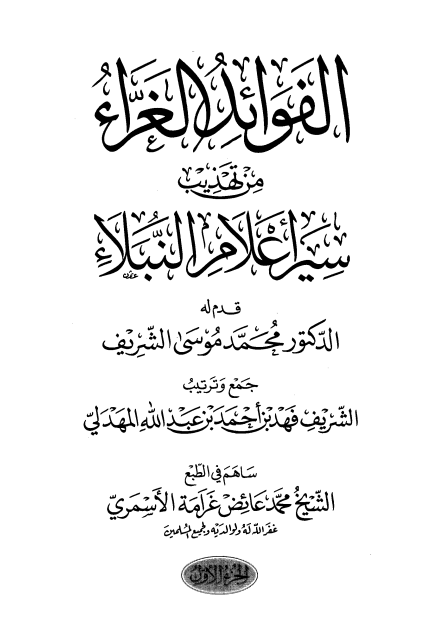 الفَوَائِدُ الغَرَّاءُ
مِنْ تَهْذِيْبِ
سِيَرِ أَعْلَامِ النُّبَلَاءِ
قدم له
الدّكتور محُمَّد مُوسَى الشّرِيْف
جَمْعُ وَتَرتيبُ
الشّرِيْفِ فَهْد بْن أَحْمَد بْن عَبْد اللهِ المَهْدَلِيّ
سَاهَمَ في الطّبْع
الشَّيْخُ محُمَّد عَائِضْ غَرَامَة الأَسْمَرِيّ
غفر الله له ولوالديه ولجميع المسلمين
الجزء الأول